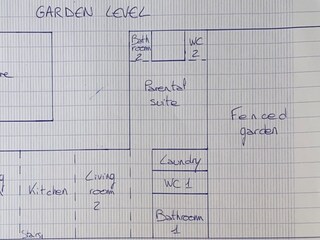 GARDEN LEVEL
Bath
room
2
WC
2
Parental
suite
Fenced
garden
Laundry
WC 1
Bathroom
1
Kitchen
Living
room
2
Stairs